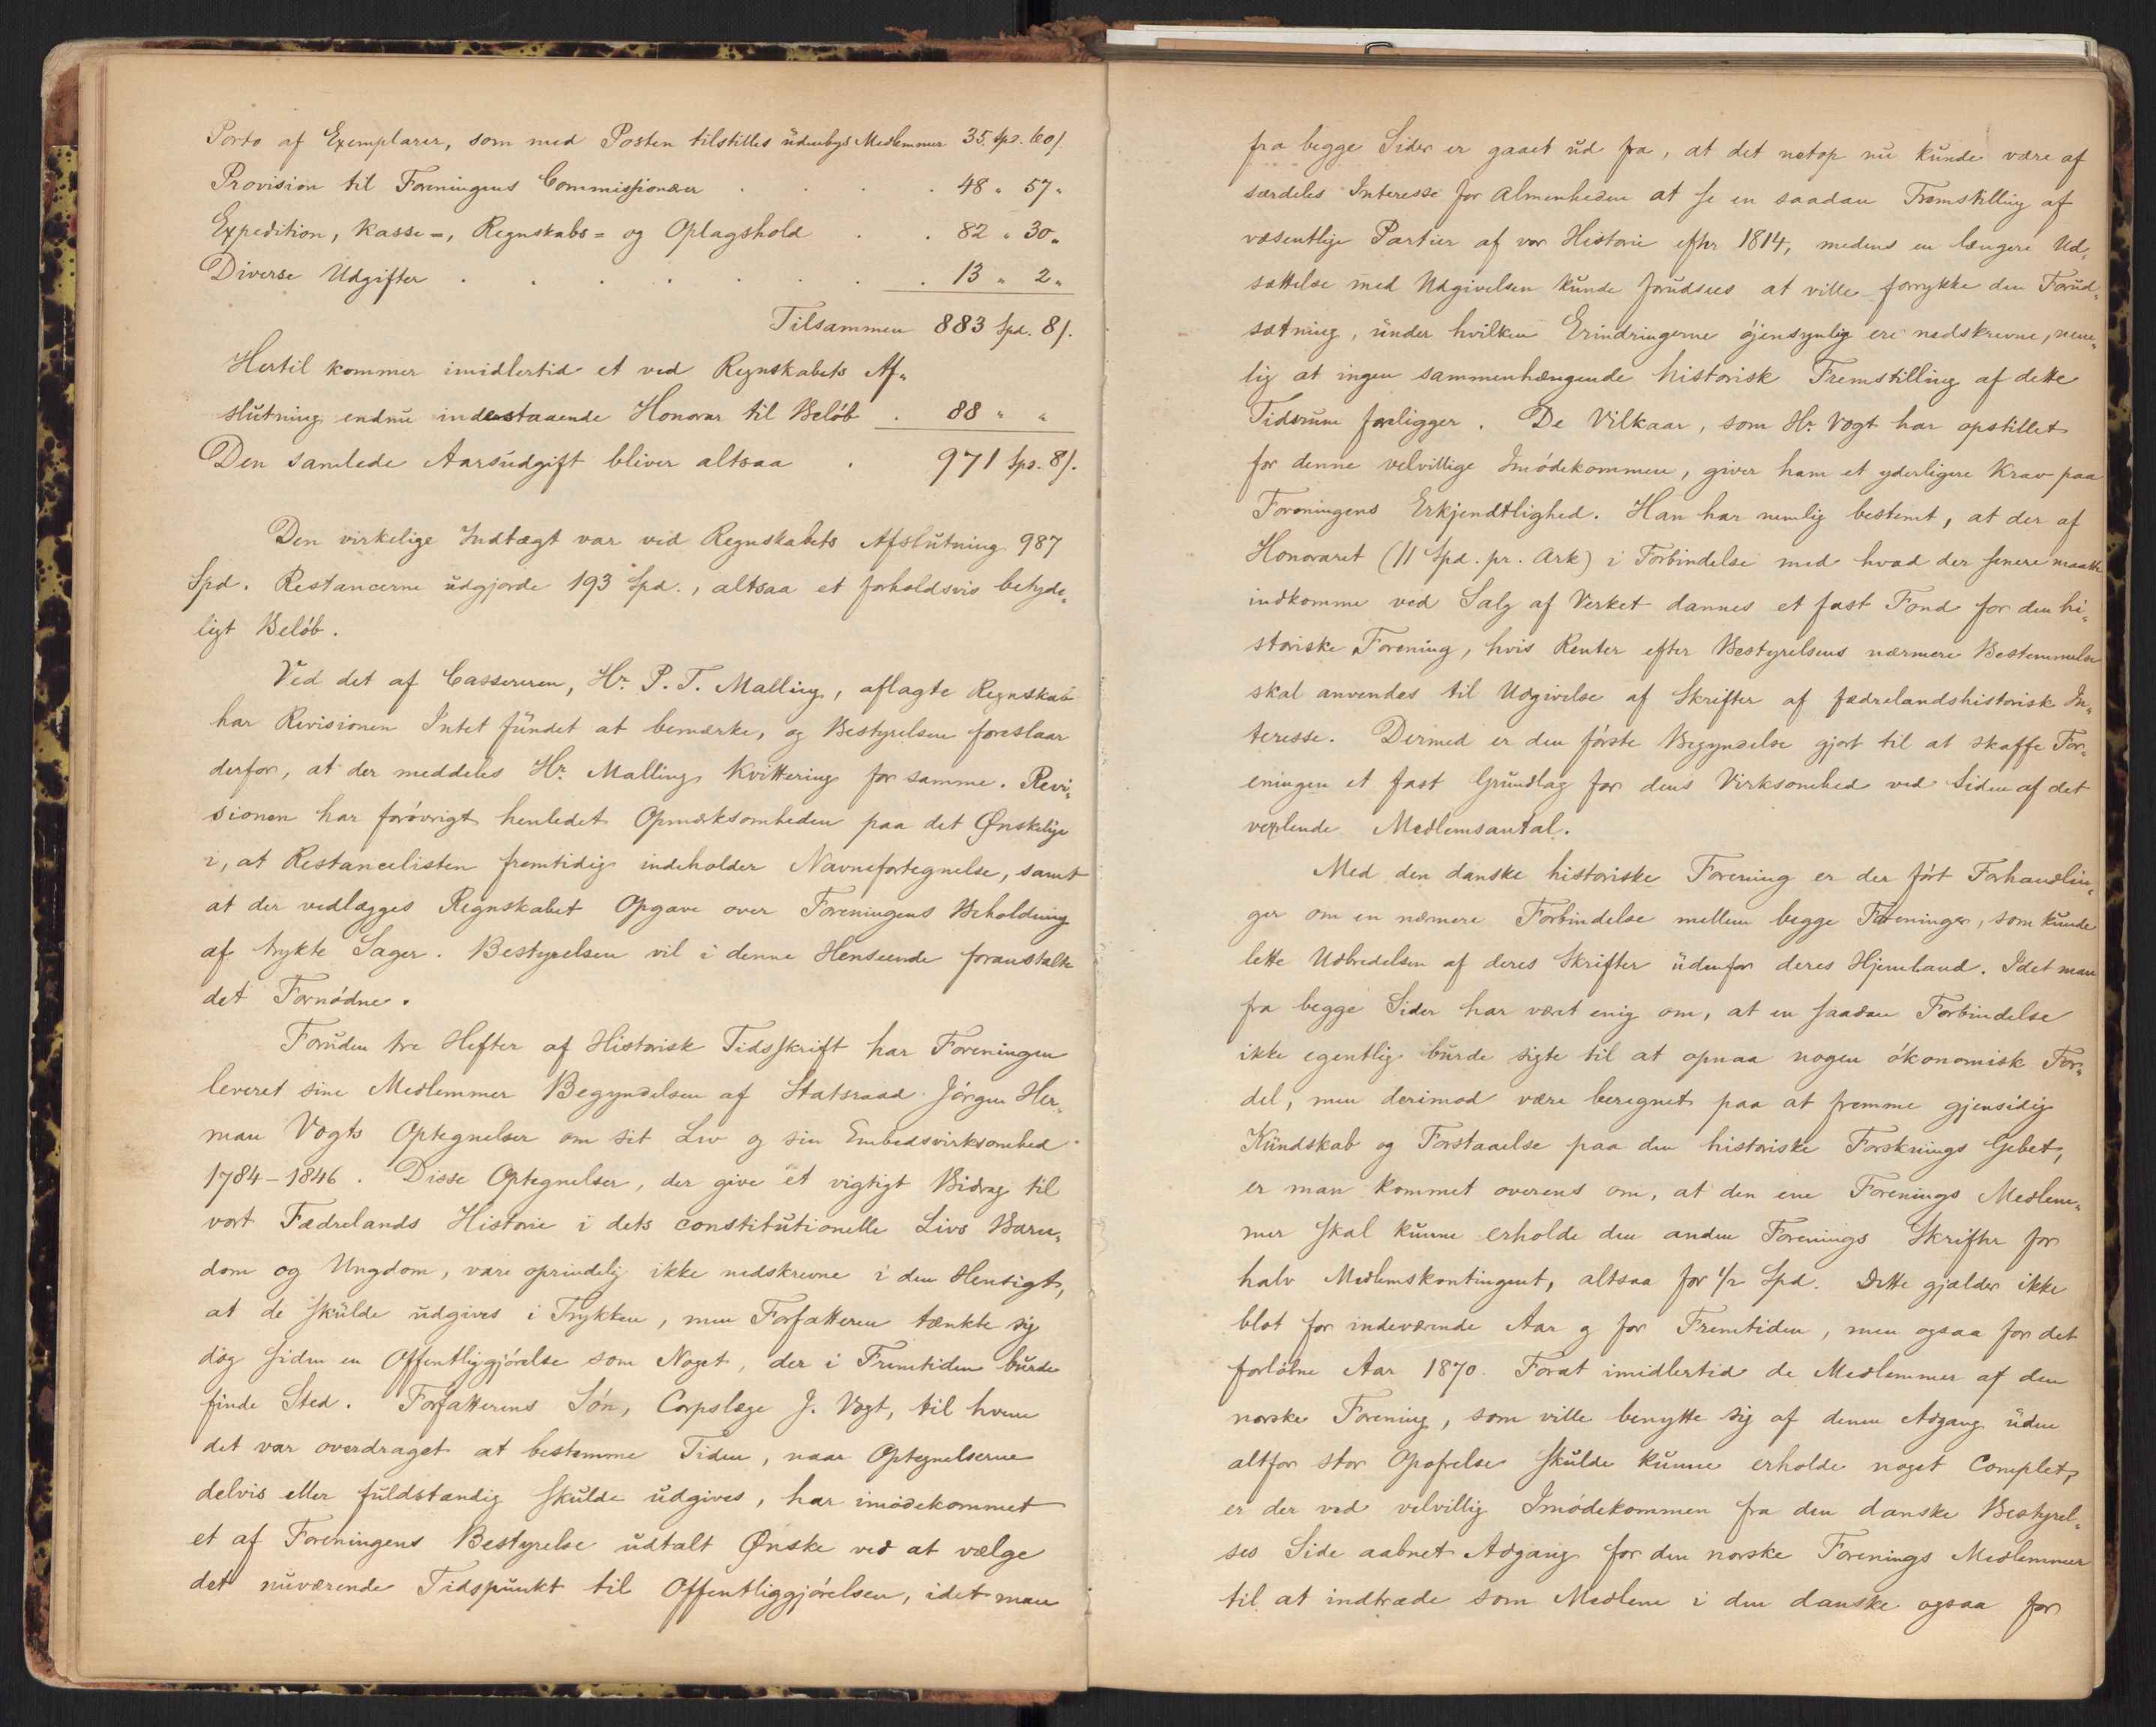 Porto af Exemplarer, som med Posten tilstilles udenbys Medlemmer 35. Spd. 60 ß.
Provision til Foreningens Commissionær . . . . 48 " 57 "
Expedition, Kasse=, Regnskabs= og Oplagshold . . 82 " 30 "
Diverse Udgifter . . . . . . . . 13 " 2 "
Tilsammen 883 Spd. 8 ß.
Hertil kommer imidlertid et ved Regnskabets Af-
slutning endnu indestaaende Honorar til Beløb . 88 " "
Den samlede Aarsudgift bliver altsaa . 971 Spd. 8 ß.
Den virkelige Indtægt var ved Regnskabets Afslutning 987
Spd. Restancerne udgjorde 193 Spd., altsaa et forholdsvis betyde-
ligt Beløb.
Ved det af Cassereren, Hr. P. T. Malling, aflagte Regnskab
har Revisionen Intet fundet at bemærke, og Bestyrelsen foreslaar
derfor, at der meddeles Hr. Malling Kvittering for samme. Revi-
sionen har forøvrigt henledet Opmærksomheden paa det Ønskelige
i, at Restancelisten fremtidig indeholder Navnefortegnelse, samt
at der vedlægges Regnskabet Opgave over Foreningens Beholdning
af trykte Sager. Bestyrelsen vil i denne Henseende foranstalte
det Fornødne.
Foruden tre Hefter af Historisk Tidsskrift har Foreningen
leveret sine Medlemmer Begyndelsen af Statsraad Jørgen Her-
man Vogts Optegnelser om sit Liv og sin Embedsvirksomhed
1784-1846. Disse Optegnelser, der give et vigtigt Bidrag til
vort Fædrelands Historie i dets constitutionelle Livs Barn-
dom og Ungdom, vare oprindelig ikke nedskrevne i den Hensigt,
at de skulde udgives i Trykken, men Forfatteren tænkte sig
dog siden en Offentliggjørelse som Noget, der i Fremtiden burde
finde Sted. Forfatterens Søn, Corpslæge J. Vogt, til hvem
det var overdraget at bestemme Tiden, naar Optegnelserne
delvis eller fuldstændig skulde udgives, har imødekommet
et af Foreningens Bestyrelse udtalt Ønske ved at vælge
det nuværende Tidspunkt til Offentliggjørelsen, idet man
fra begge Sider er gaaet ud fra, at det netop nu kunde være af
særdeles Interesse for Almenheden at se en saadan Fremstilling af
væsentlige Partier af vor Historie efter 1814, medens en længere Ud-
sættelse med Udgivelsen kunde forudsees at ville forrykke den Forud-
sætning, under hvilken Erindringerne øjensynlig ere nedskrevne, nem-
lig at ingen sammenhængende historisk Fremstilling af dette
Tidsrum foreligger. De Vilkaar, som Hr. Vogt har opstillet
for denne velvillige Imødekommen, giver ham et yderligere Krav paa
Foreningens Erkjendtlighed. Han har nemlig bestemt, at der af
Honoraret (11 Spd. pr. Ark) i Forbindelse med hvad der senere maatte
indkomme ved Salg af Verket dannes et fast Fond for den hi-
storiske Forening, hvis Renter efter Bestyrelsens nærmere Bestemmelse
skal anvendes til Udgivelse af Skrifter af fædrelandshistorisk In-
teresse. Dermed er den første Begyndelse gjort til at skaffe For-
eningen et fast Grundlag for dens Virksomhed ved Siden af det
vexlende Medlemsantal.
Med den danske historiske Forening er der ført Forhandlin-
ger om en nærmere Forbindelse mellem begge Foreninger, som kunde
lette Udbredelsen af deres Skrifter udenfor deres Hjemland. Idet man
fra begge Sider har været enig om, at en saadan Forbindelse
ikke egentlig burde sigte til at opnaa nogen økonomisk For-
del, men derimod være beregnet paa at fremme gjensidig
Kundskab og Forstaaelse paa den historiske Forsknings Gebet,
er man kommet overens om, at den ene Forenings Medlem-
mer skal kunne erholde den anden Forenings Skrifter for
halv Medlemskontingent, altsaa for 1/2 Spd. Dette gjælder ikke
blot for indeværende Aar og for Fremtiden, men ogsaa for det
forløbne Aar 1870. Forat imidlertid de Medlemmer af den
norske Forening, som ville benytte sig af denne Adgang uden
altfor stor Opofrelse skulde kunne erholde noget Complet,
er der ved velvillig Imødekommen fra den danske Bestyrel-
ses Side aabnet Adgang for den norske Forenings Medlemmer
til at indtræde som Medlem i den danske ogsaa for